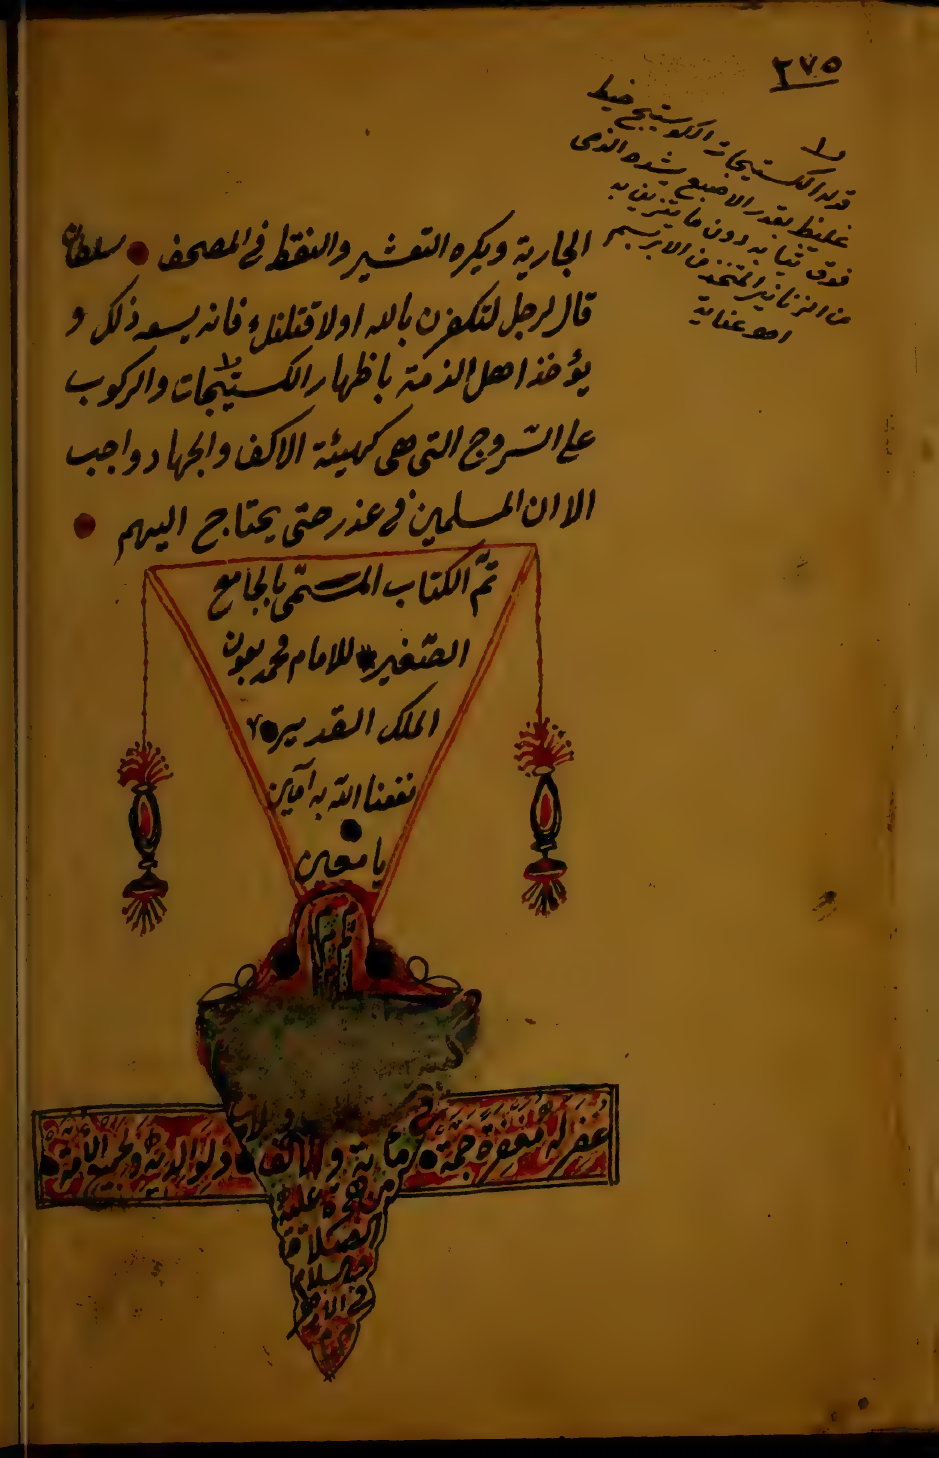 ٢٧٥
قوله الكستيجات الكوستيج خيط
غليظ بقدر الاصبع يشده الذمى
فوق ثيابه دون ما يتزين به
من الزنانير المتخذ من الابريسم
اهو عناية
الجارية ويكره التعشير والنقط فى المصحف سلطان
قال لرجل لتكفرن بالله اولاقتلنك فانه يسعه ذلك و
يؤخذ اهل الذمة باظهار الكستيجات والركوب
على السروج التى هى كهيئة الاكف والجهاد واجب
الا ان المسلمين فى عذر حتى يحتاج اليهم
تمّ الكتاب المسمّى بالجامع
الصّغير للامام محمد بعون
الملك القدير
نفعنا الله به آمين
يا معين
غفر له مغفرة
ولوالديه
مائة والالف
من هجرة عليه
الصلاة
والسلام